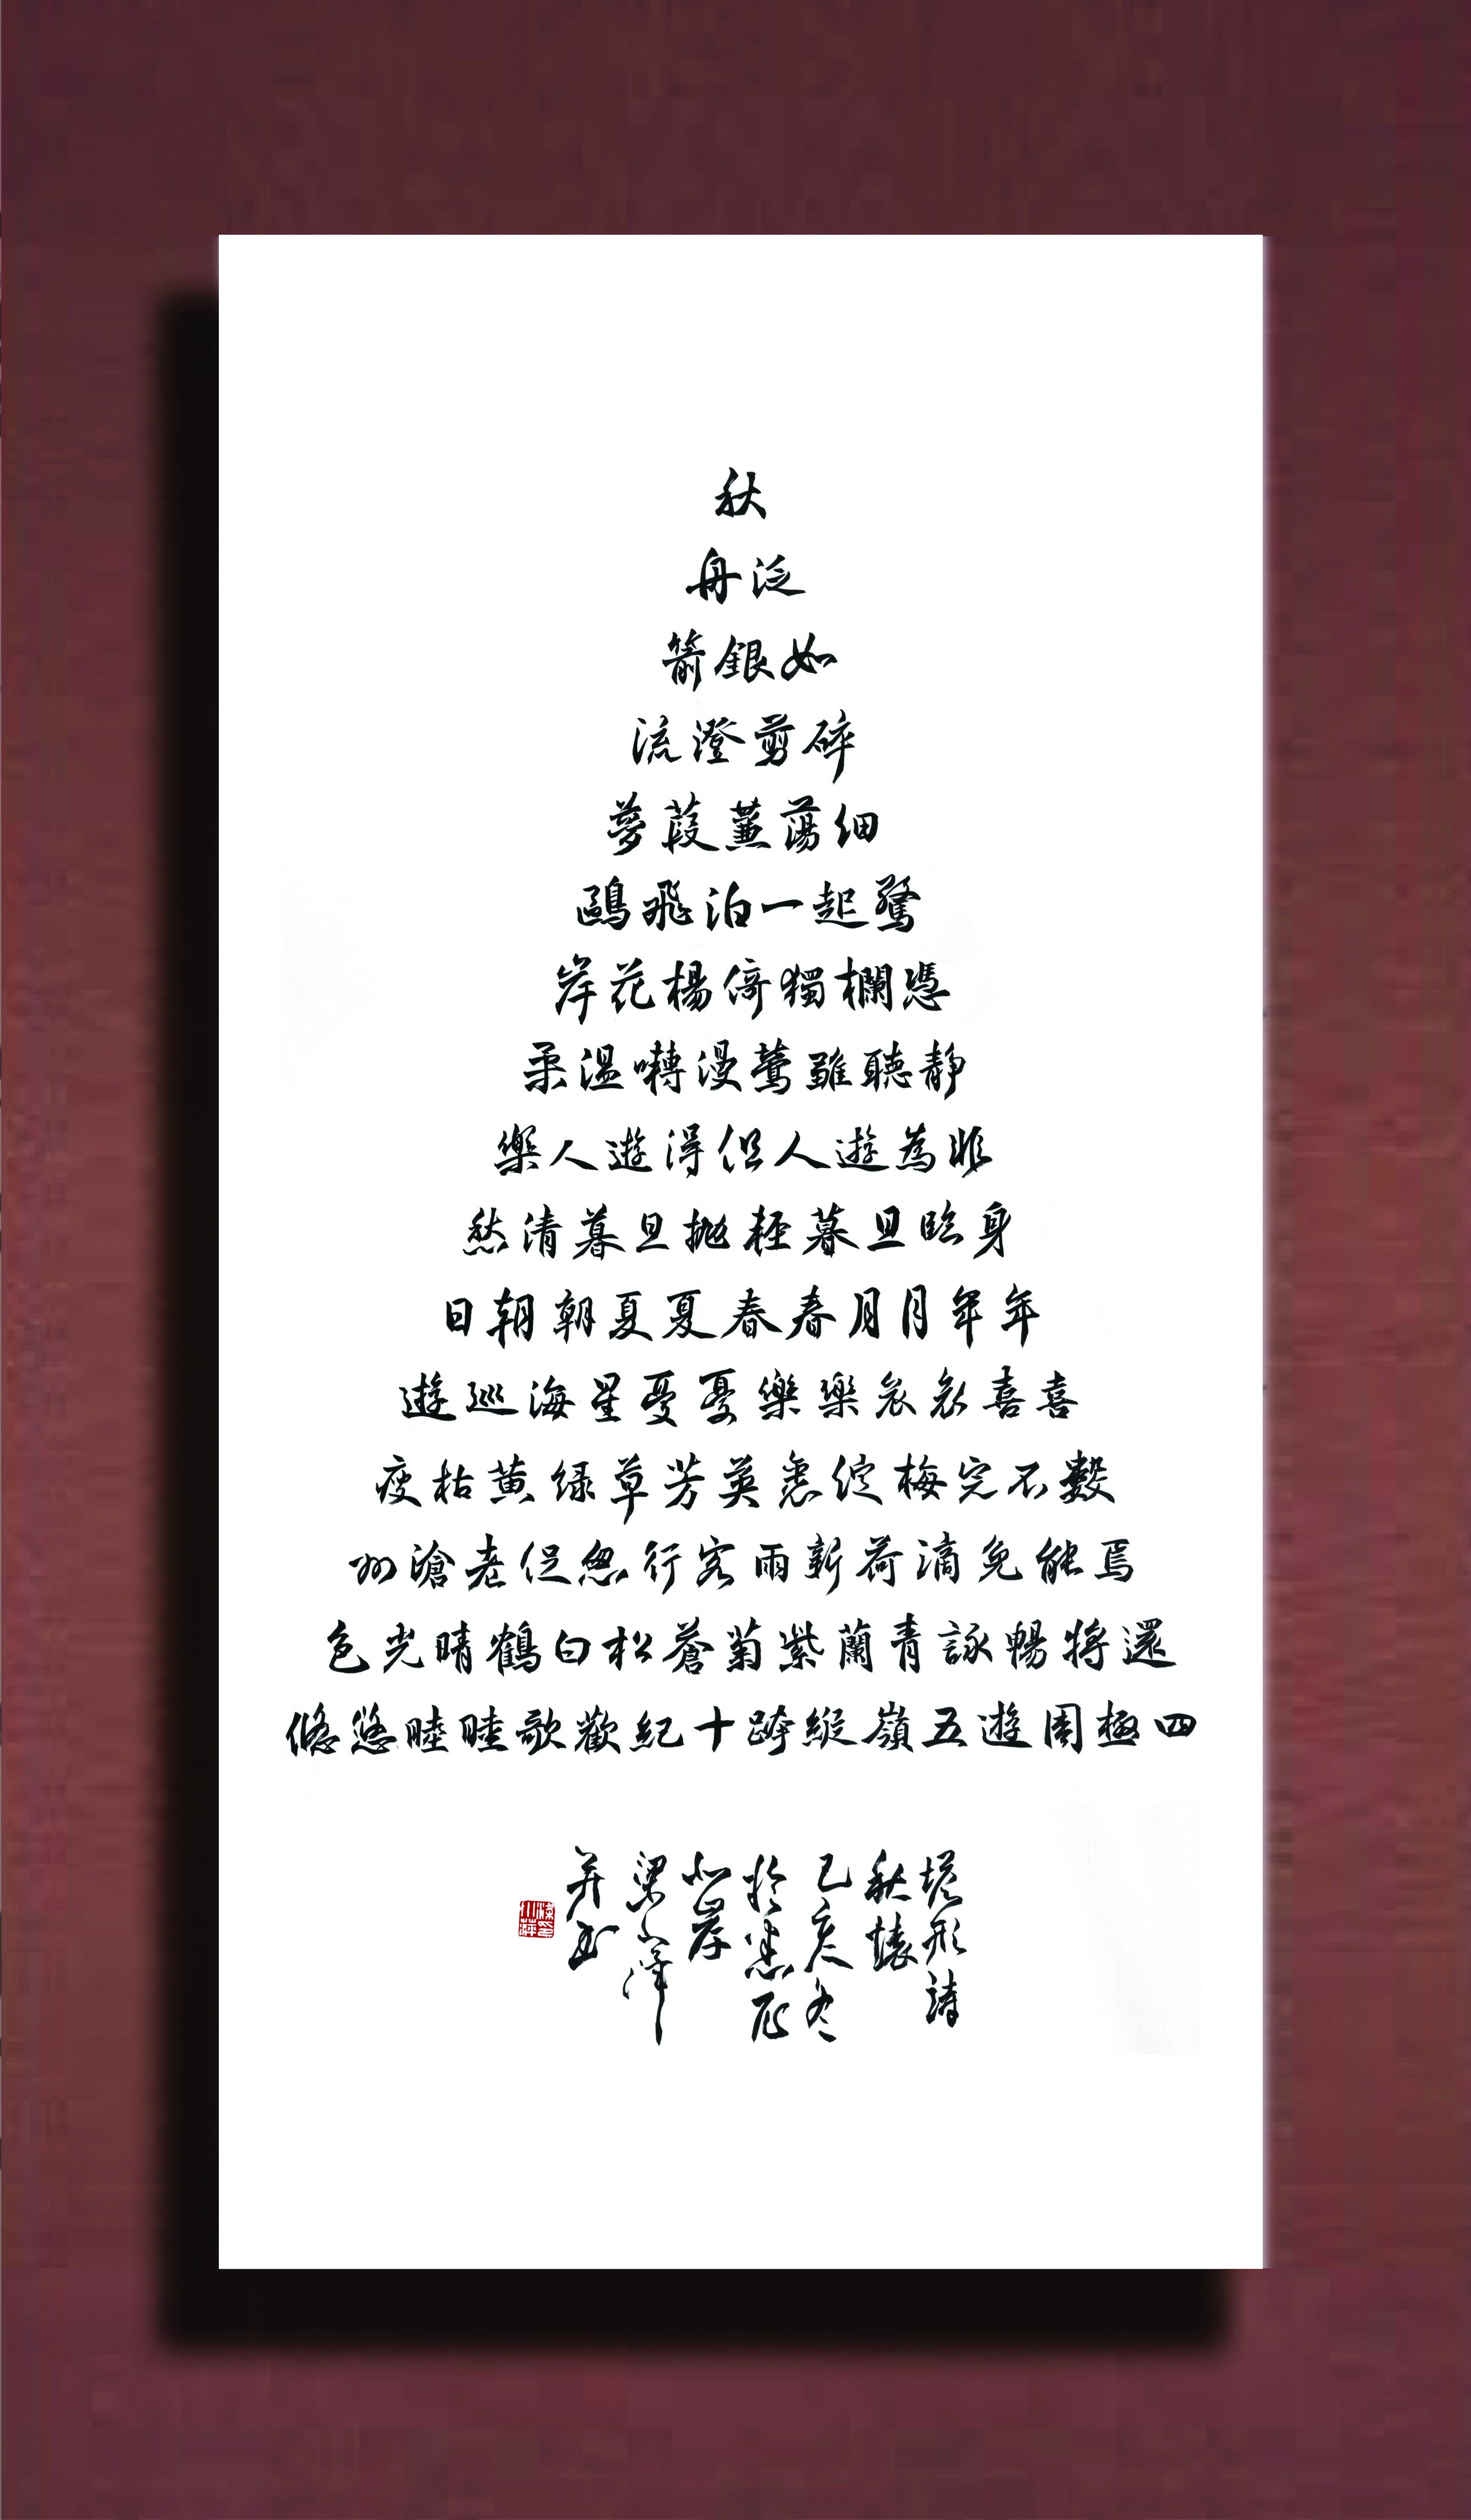 秋
泛舟
如銀箭
碎剪澄流
細蕩蒹葭夢
驚起一泊飛鷗
憑欄獨倚楊花岸
靜聽雖鶯漫囀溫柔
非為遊人但得遊人樂
身臨旦暮輕拋旦暮清愁
年年月月春春夏夏朝朝日
喜喜哀哀樂樂憂憂星海巡遊
數不完梅綻英芳草綠黃枯瘦
焉能免滴荷新雨客行忽促老滄州
還將暢詠青蘭紫菊蒼松白鶴晴光色
四極周遊五嶺縱跨十紀歡歌睦睦悠悠
塔形詩
秋懷
己亥冬
於悉尼
北岸
梁小萍
并書